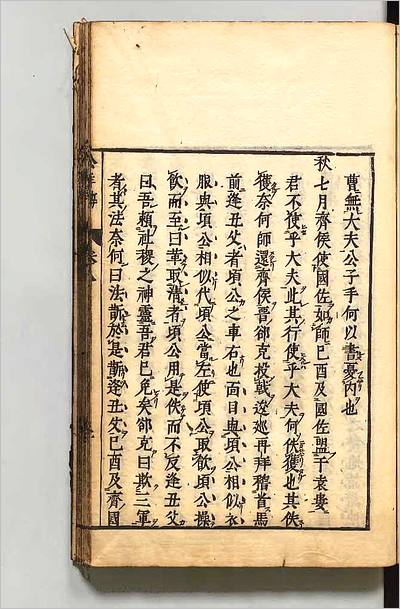 曹無大夫公子手何以書憂內也
秋七月齊侯使國佐如師己酉及國佐盟于袁婁
君不使乎大夫此其行使乎大夫何佚獲也其佚
獲奈何師還齊侯晉郤克投戟逡巡再拜稽首馬
前逢丑父者頃公之車右也面目與頃公相似衣
服與頃公相似代頃公當左使頃公取飲頃公操
飲而至曰革取清者頃公用是佚而不反逢丑父
曰吾賴社稷之神靈吾君已免矣郤克曰欺三軍
者其法奈何曰法斮於是斮逢丑父己酉及齊國